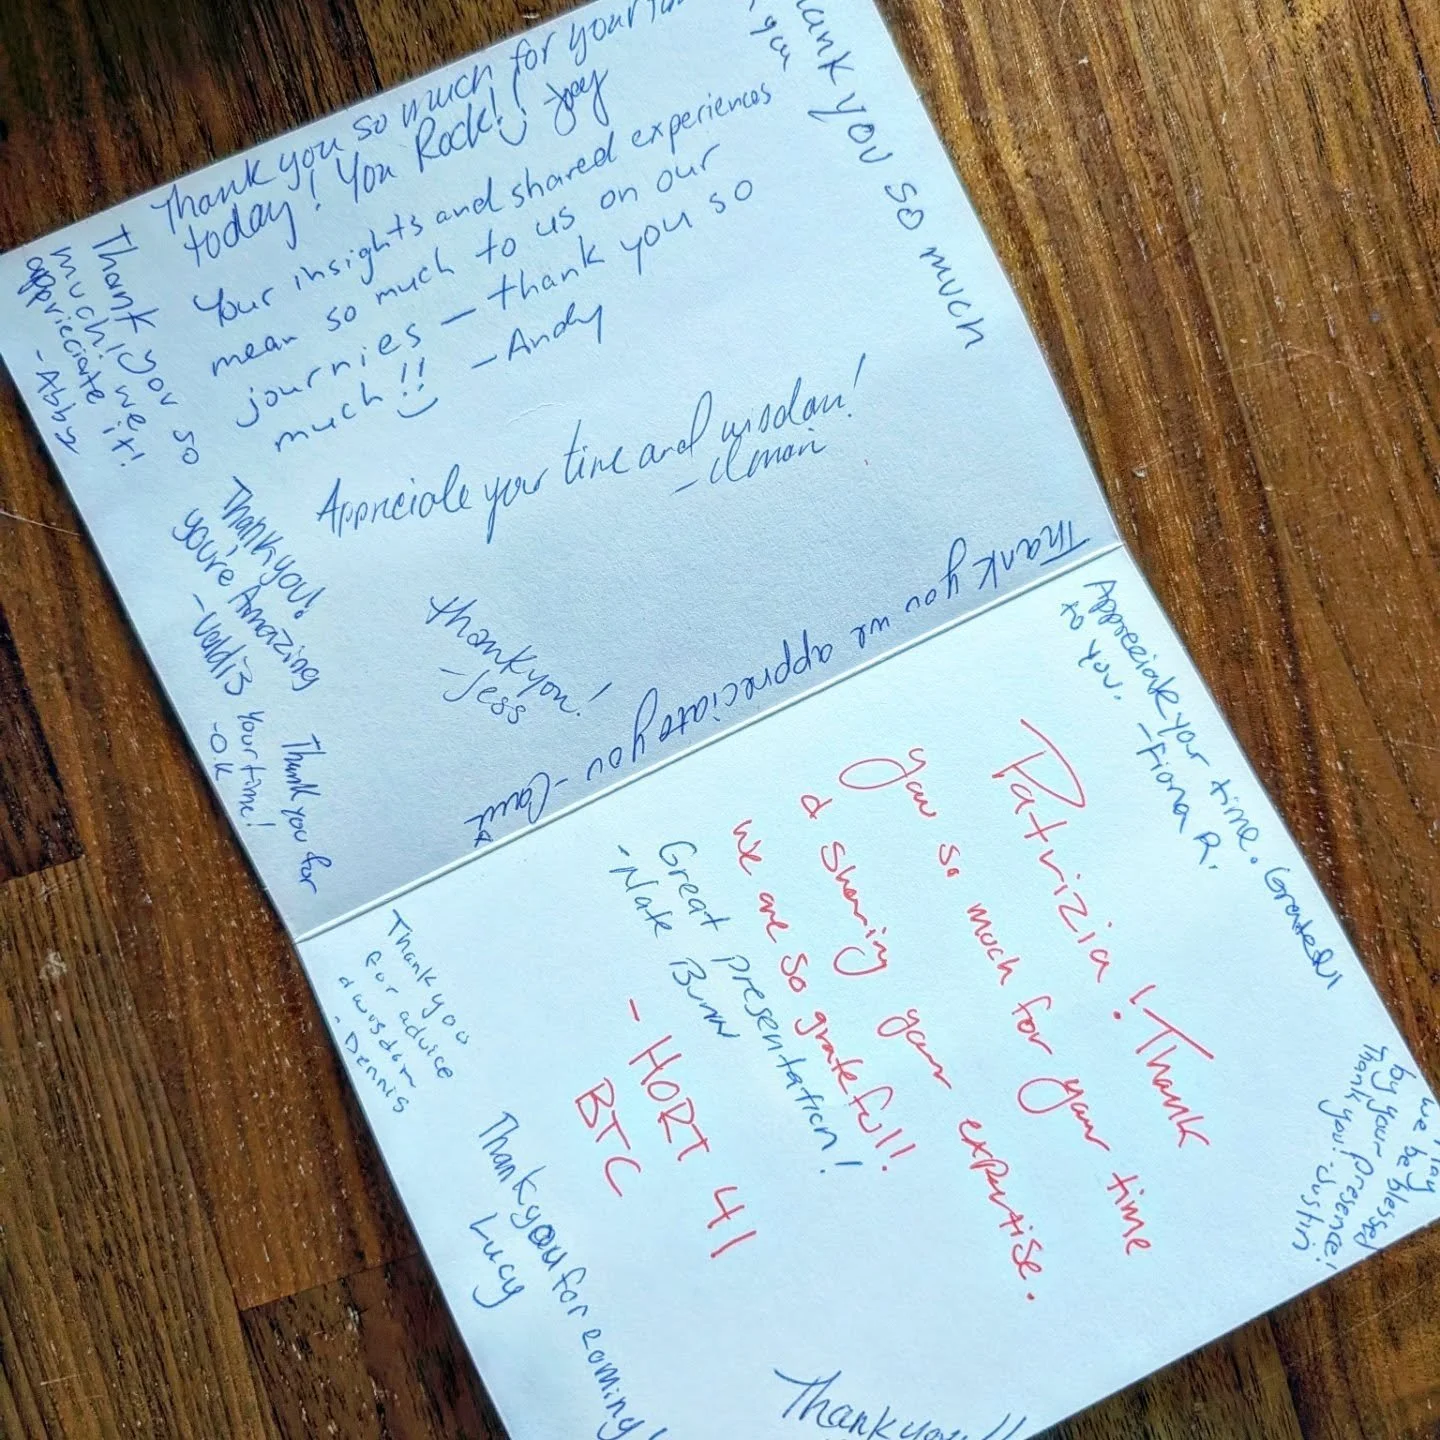 Thank you so much for your
today! You Rock!! Joey
Your insights and shared experiences
mean so much to us on our
journies — thank you so
much!! - Andy
Thank you so much
you
Thank you so
much! we
appricciate it!
- Abby
Appreciate your time and wisdom!
Thank you!
you're Amazing
Thank you!
- Jess
Thank you for
your time!
- O.K
Thank you we appreciate you
Appreciate your time. Grateful
to you. - Fiona R.
Patrizia! Thank
you so much for your time
& sharing your expertise.
We are so grateful!!
- HORT 41
BTC
Great presentation!
- Nate Burn
Thank you
for advice
& wisdom
- Dennis
Thank you for coming!
Lucy
we be blessed
by your presence!
Thank you! - Justin
Thank you!!